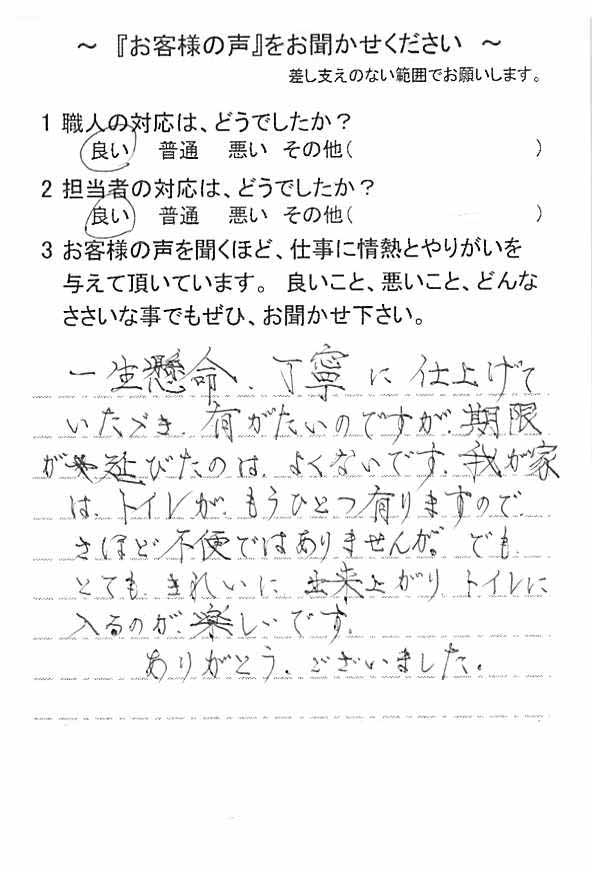 ～ 『お客様の声』をお聞かせください ～
差し支えのない範囲でお願いします。
1 職人の対応は、どうでしたか？
良い 普通 悪い その他( )
2 担当者の対応は、どうでしたか？
良い 普通 悪い その他( )
3 お客様の声を聞くほど、仕事に情熱とやりがいを
与えて頂いています。 良いこと、悪いこと、どんな
ささいな事でもぜひ、お聞かせ下さい。
一生懸命、丁寧に仕上げて
いたゞき、有がたいのですが、期限
が延びたのは、よくないです。我が家
は、トイレが、もうひとつ有りますので、
さほど不便ではありませんが。でも、
とても、きれいに出来上がり、トイレに
入るのが、楽しいです。
ありがとう、ございました。